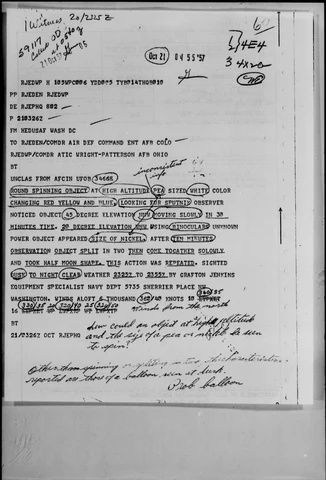 1 Witness 20/2325Z
6
Oct 21 04 55 '57
RJEDWP H 105WPC006 YDD075 TYH014THQB010
PP RJEDEN RJEDWP
DE RJEPHQ 082
P 210326Z
FM HEDUSAF WASH DC
TO RJEDEN/COMDR AIR DEF COMMAND ENT AFB COLO
RJEDWP/COMDR ATIC WRIGHT-PATTERSON AFB OHIO
inconsistent info
BT
UNCLAS FROM AFCIN UFOB
ROUND SPINNING OBJECT AT HIGH ALTITUDE PEA SIZED WHITE COLOR
CHANGING RED YELLOW AND BLUE. LOOKING FOR SPUTNIK OBSERVER
NOTICED OBJECT 45 DEGREE ELEVATION NOW MOVING SLOWLY IN 30
MINUTES TIME. 20 DEGREE ELEVATION NOW. USING BINOCULARS UNKNOWN
POWER OBJECT APPEARED SIZE OF NICKEL. AFTER TEN MINUTES
OBSERVATION OBJECT SPLIT IN TWO THEN COME TOGETHER SOLOWLY
AND TOOK HALF MOON SHAPE. THIS ACTION WAS REPEATED. SIGHTED
DUSK TO NIGHT CLEAR WEATHER 2325Z TO 2355Z BY GRAFTON JENKINS
EQUIPMENT SPECIALIST NAVY DEPT 5735 SHERRIER PLACE NW
WASHINGTON. WINDS ALOFT 6 THOUSAND 360/10 KNOTS 10
Winds from the north
BT
21/0326Z OCT RJEPHQ
how could an object at high altitude
and the size of a pea or nickel be seen
to spin?
Other than spinning or splitting in two the characteristics
reported are those of a balloon seen at dusk.
Prob balloon